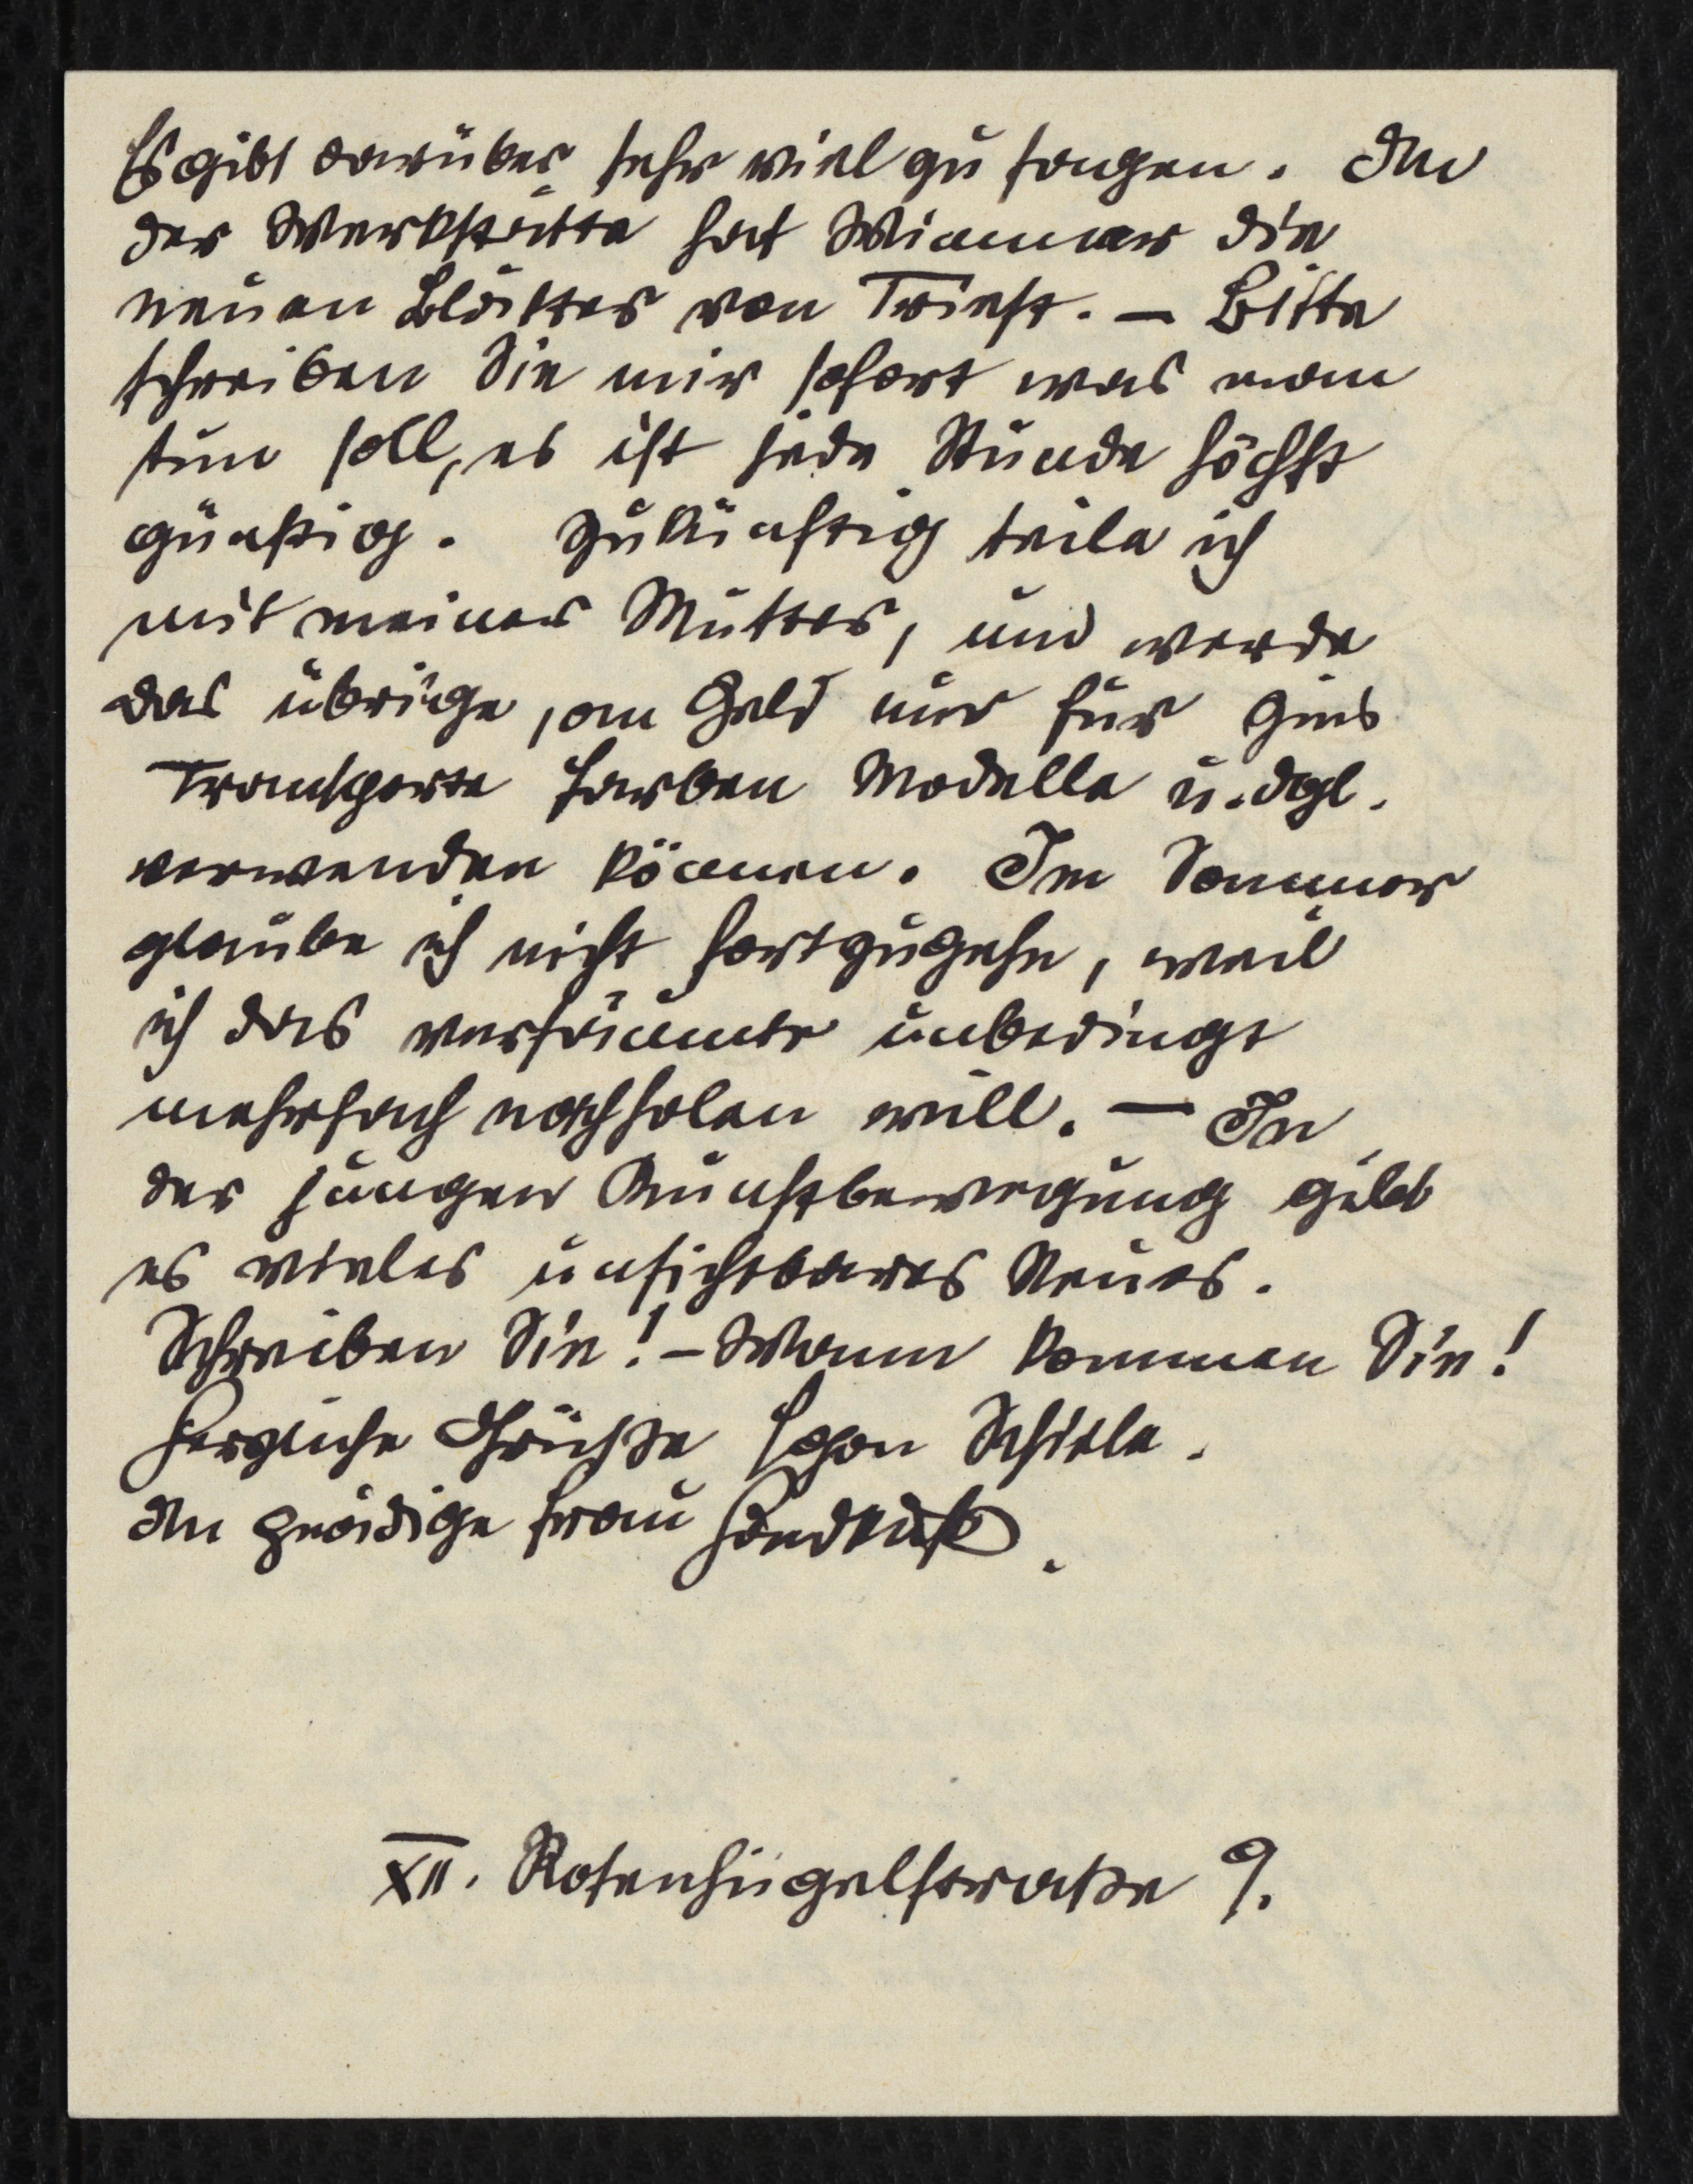 Es gibt darüber sehr viel zu sagen. In
der Werkstätte hat Wimmer die
neuen Blätter von Triest. – Bitte
schreiben Sie mir sofort was man
tun soll, es ist jede Stunde höchst
günstig. Zukünftig teile ich
mit meiner Mutter, und werde
das übrige, an Geld nur für Zins
Transporte Farben Modelle u. dgl.
verwenden können. Im Sommer
glaube ich nicht fortzugehn, weil
ich das versäumte unbedingt
mehrfach nachholen will. – In
der jungen Kunstbewegung gibt
es vieles unsichtbares Neues.
Schreiben Sie! – Wann kommen Sie!
Herzliche Grüße Egon Schiele.
An gnädige Frau Handkuß.
XII. Rosenhügelstraße 9.